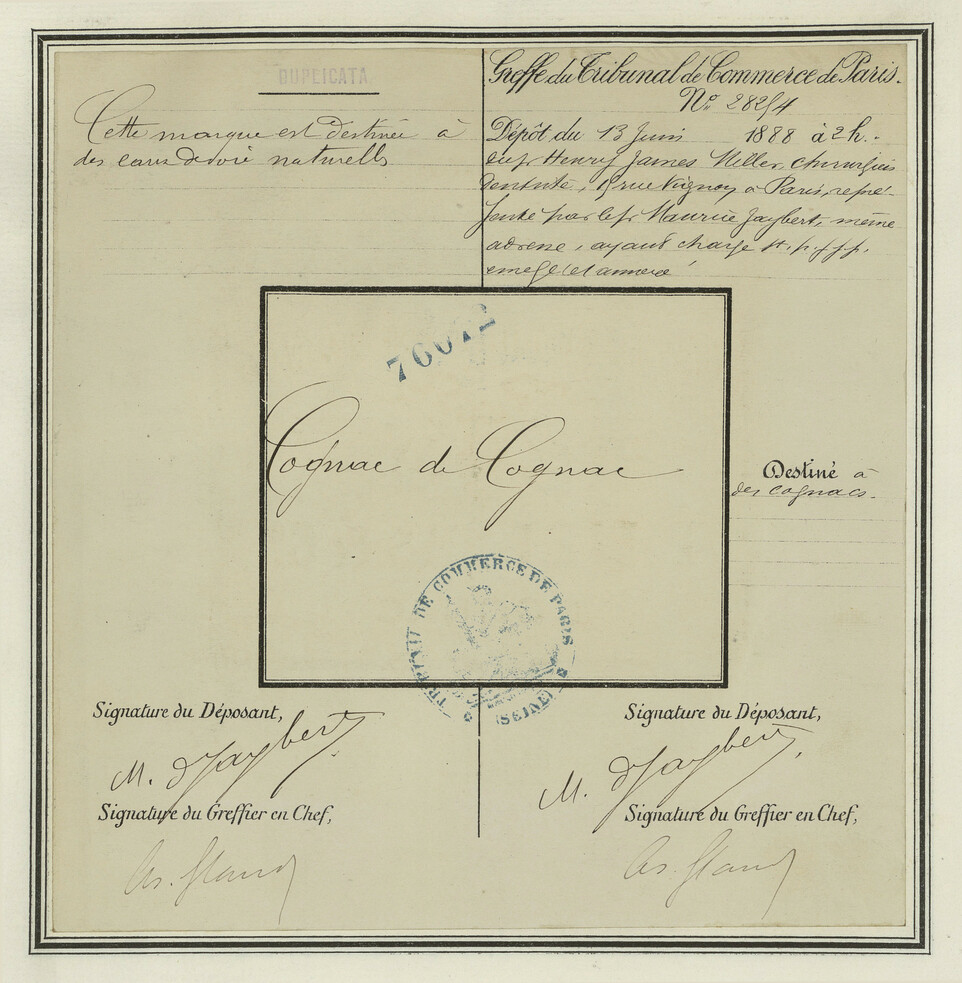 DUPLICATA
Cette marque est destinée à
des eaux de vie naturelles
Greffe du Tribunal de Commerce de Paris.
No. 28254
Dépôt du 13 Juin 1888 à 2 h.
Henry James Miller, chirurgien
dentiste, rue Vignon à Paris, repré-
senté par le sr Maurice Jaybert, même
adresse, ayant charge
76072
Cognac de Cognac
Destiné à
des cognacs.
TRIBUNAL DE COMMERCE DE PARIS
(SEINE)
Signature du Déposant,
Signature du Déposant,
M. d'Jaybert
M. d'Jaybert
Signature du Greffier en Chef,
Signature du Greffier en Chef,